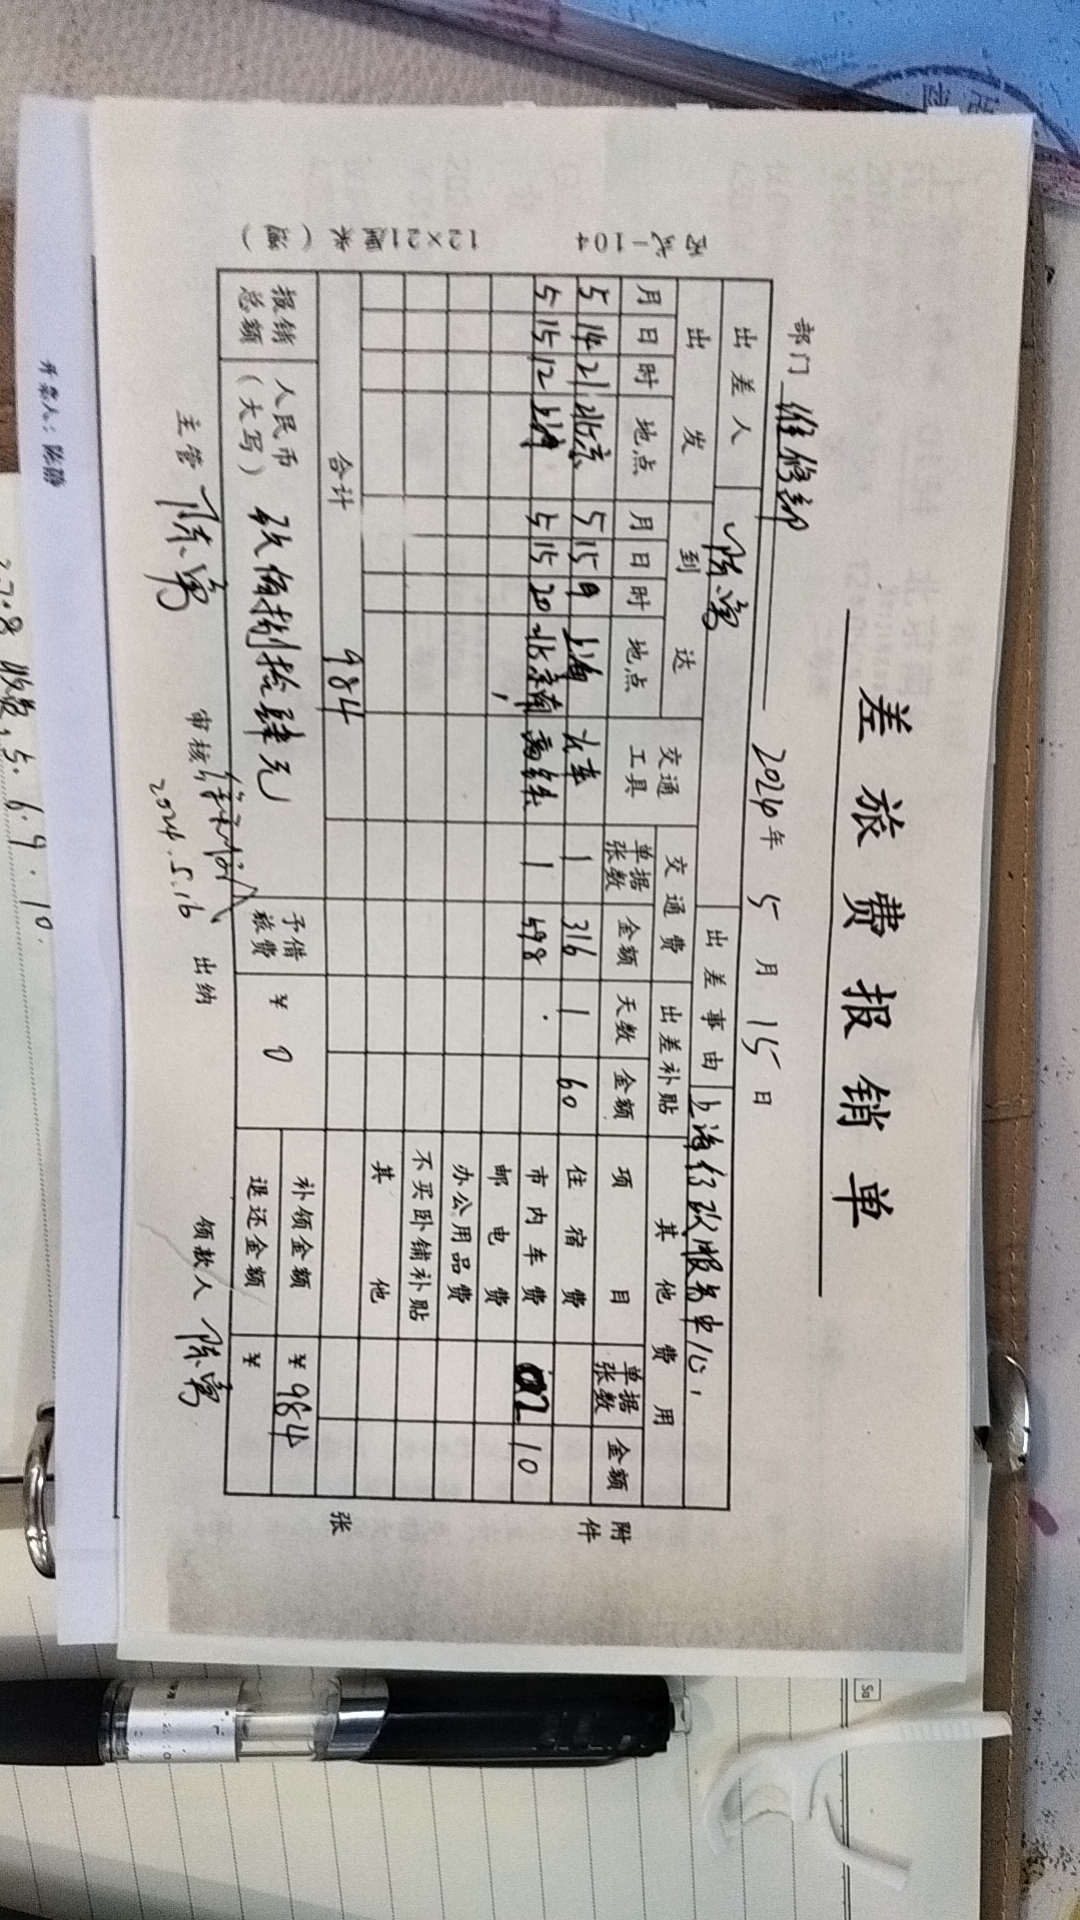 差旅费报销单
部门 维修部 2024年 5月 15日
出差人 陈富 出差事由 上海行政服务中心
出发 到达 交通工具 交通费 出差补贴 其他费用
月 日 时 地点 月 日 时 地点 单据张数 金额 天数 金额 项目 单据张数 金额
5 14 21 北京 5 15 9 上海 火车 1 316 1 60 住宿费
5 15 12 上海 5 15 20 北京南 高铁 1 598 市内车费 2 10
邮电费
办公用品费
不买卧铺补贴
其他
合计 984
报销总额 人民币(大写) 玖佰捌拾肆元 予借旅费 ¥ 0 补领金额 ¥984
退还金额 ¥
主管 陈富 审核 出纳 领款人 陈富
2024.5.16
附件 张
12×21
开票人：陈静
6.9.10.